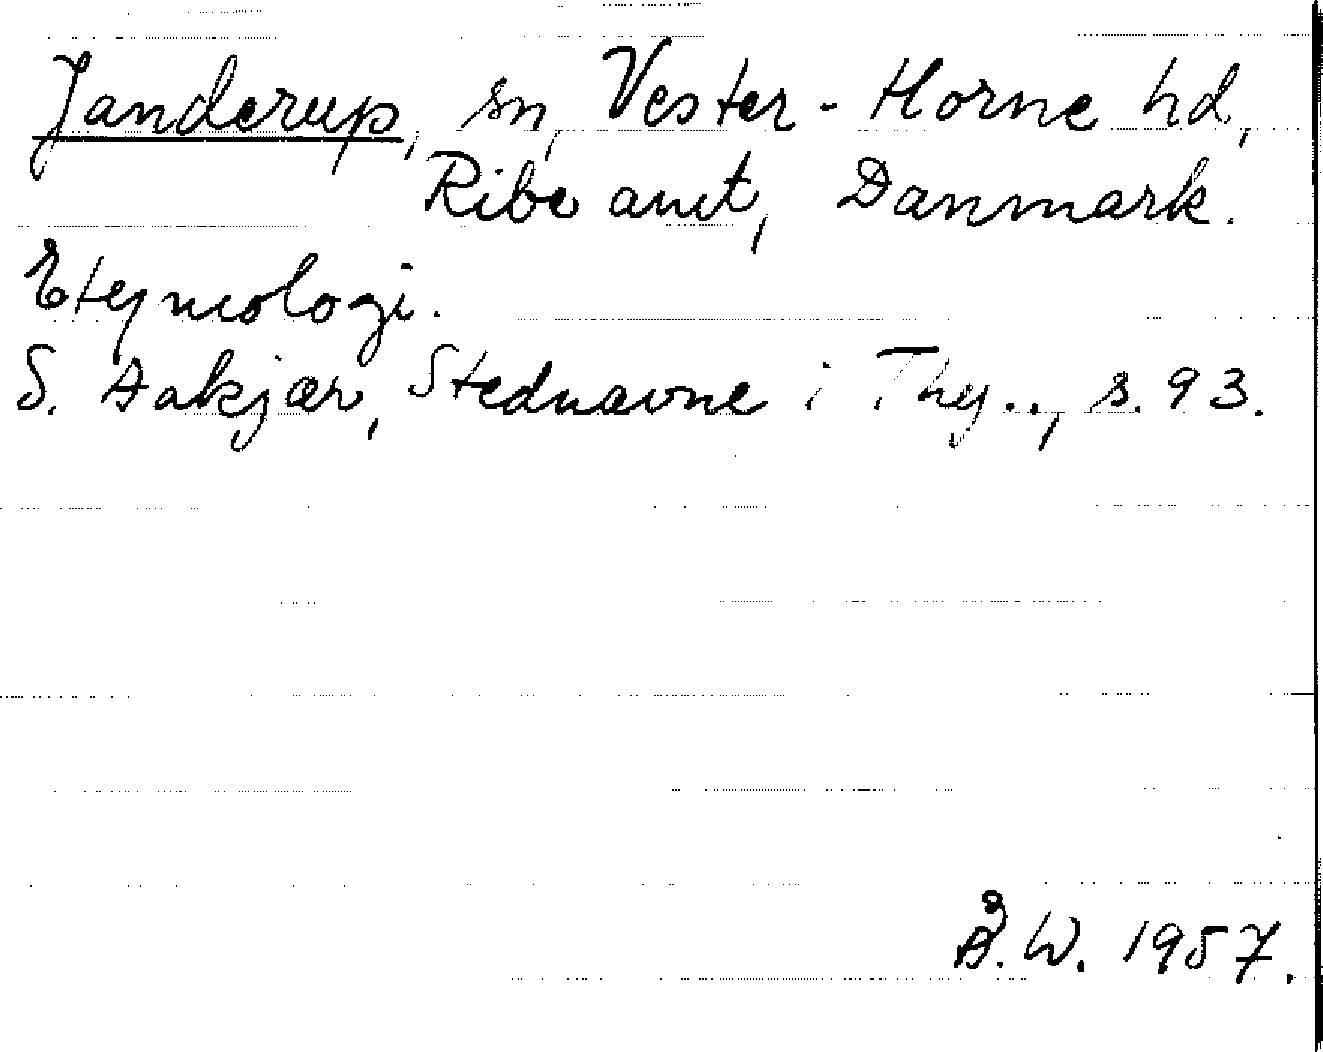 Janderup, sn, Vester-Horne hd,
Ribe amt, Danmark.
Etymologi.
S. Aakjær, Stednavne i Thy.., s. 93.
B.W. 1957.